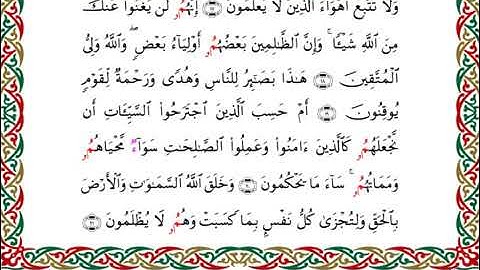 وَلَا تَتَّبِعْ أَهْوَآءَ ٱلَّذِينَ لَا يَعْلَمُونَ ١٧ إِنَّهُمُۥ لَن يُغْنُوا۟ عَنكَ
مِنَ ٱللَّهِ شَيْـًٔا ۚ وَإِنَّ ٱلظَّـٰلِمِينَ بَعْضُهُمُۥ أَوْلِيَآءُ بَعْضٍ ۖ وَٱللَّهُ وَلِىُّ
ٱلْمُتَّقِينَ ١٨ هَـٰذَا بَصَـٰٓئِرُ لِلنَّاسِ وَهُدًى وَرَحْمَةٌ لِّقَوْمٍ
يُوقِنُونَ ١٩ أَمْ حَسِبَ ٱلَّذِينَ ٱجْتَرَحُوا۟ ٱلسَّيِّـَٔاتِ أَن
نَّجْعَلَهُمُۥ كَٱلَّذِينَ ءَامَنُوا۟ وَعَمِلُوا۟ ٱلصَّـٰلِحَـٰتِ سَوَآءٌ مَّحْيَاهُمُۥ
وَمَمَاتُهُمُۥ ۚ سَآءَ مَا يَحْكُمُونَ ٢٠ وَخَلَقَ ٱللَّهُ ٱلسَّمَـٰوَٰتِ وَٱلْأَرْضَ
بِٱلْحَقِّ وَلِتُجْزَىٰ كُلُّ نَفْسٍۭ بِمَا كَسَبَتْ وَهُمُۥ لَا يُظْلَمُونَ ٢١